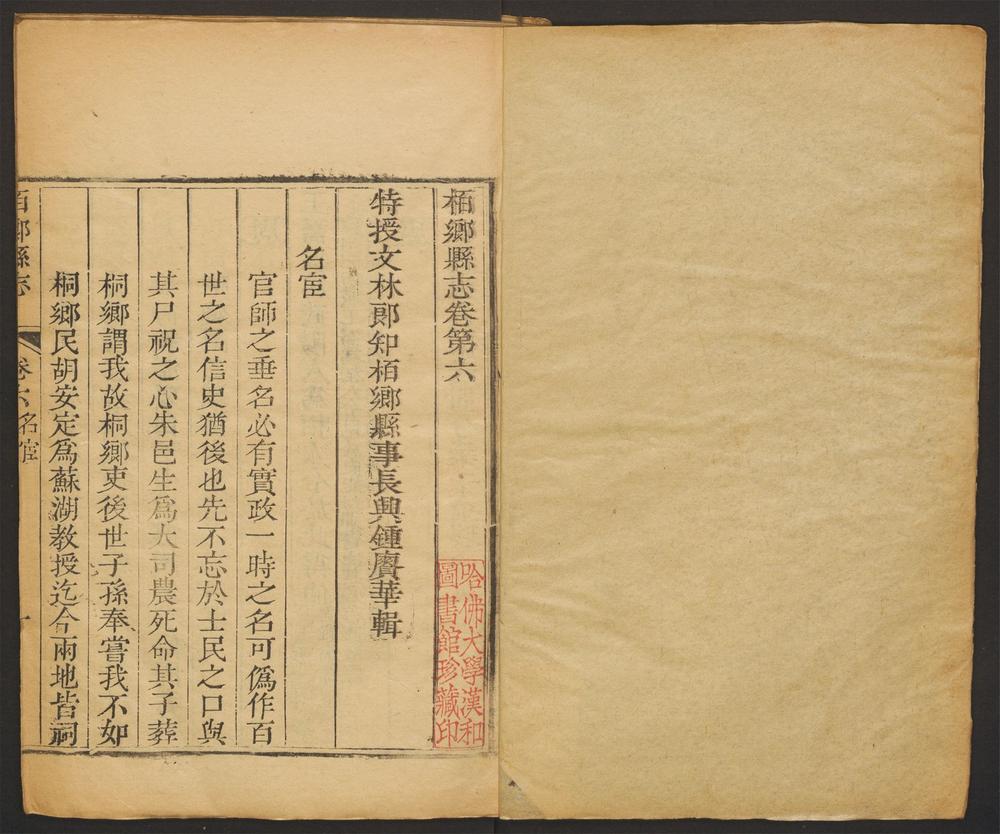 栢鄉縣志卷第六
特授文林郎知栢鄉縣事長興鍾賡華輯
名宦
官師之垂名必有實政一時之名可僞作百
世之名信史猶後也先不忘於士民之口與
其尸祝之心朱邑生爲大司農死命其子葬
桐鄉謂我故桐鄉吏後世子孫奉嘗我不如
桐鄉民胡安定爲蘇湖教授迄今兩地皆祠
栢鄉縣志
卷六名宦
一
哈佛大學漢和
圖書館珍藏印